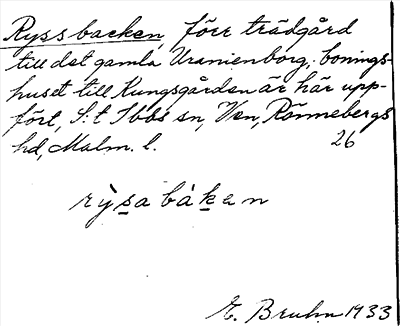 Ryssbacken, förr trädgård
till det gamla Uranienborg; bonings-
huset till Kungsgården är här upp-
fört, S:t Ibbs sn, Ven, Rönnebergs
hd, Malm. l. 26
rỳsabàkan
E. Bruhn 1933